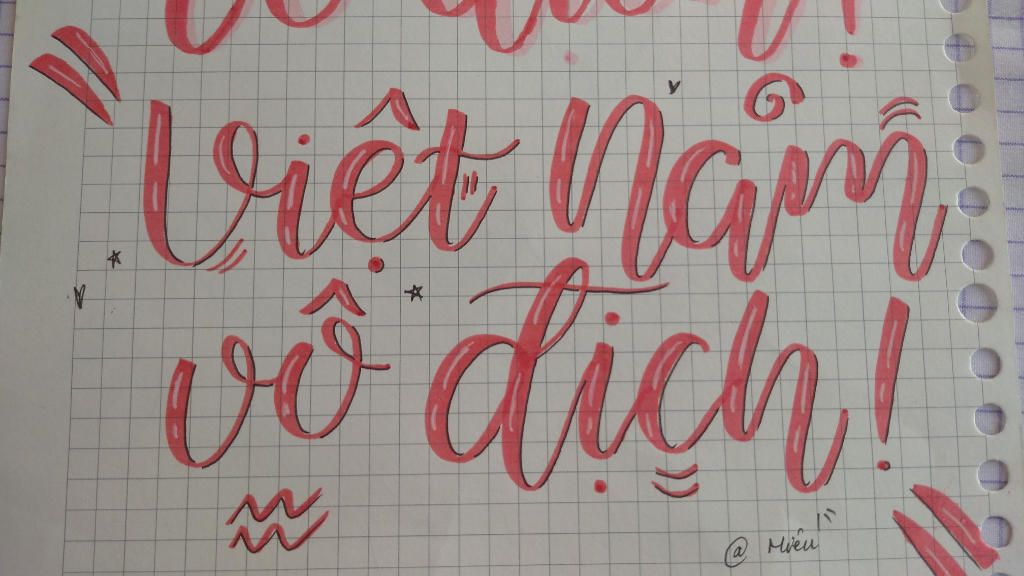 Việt Nam
vô địch!
@ Miêu